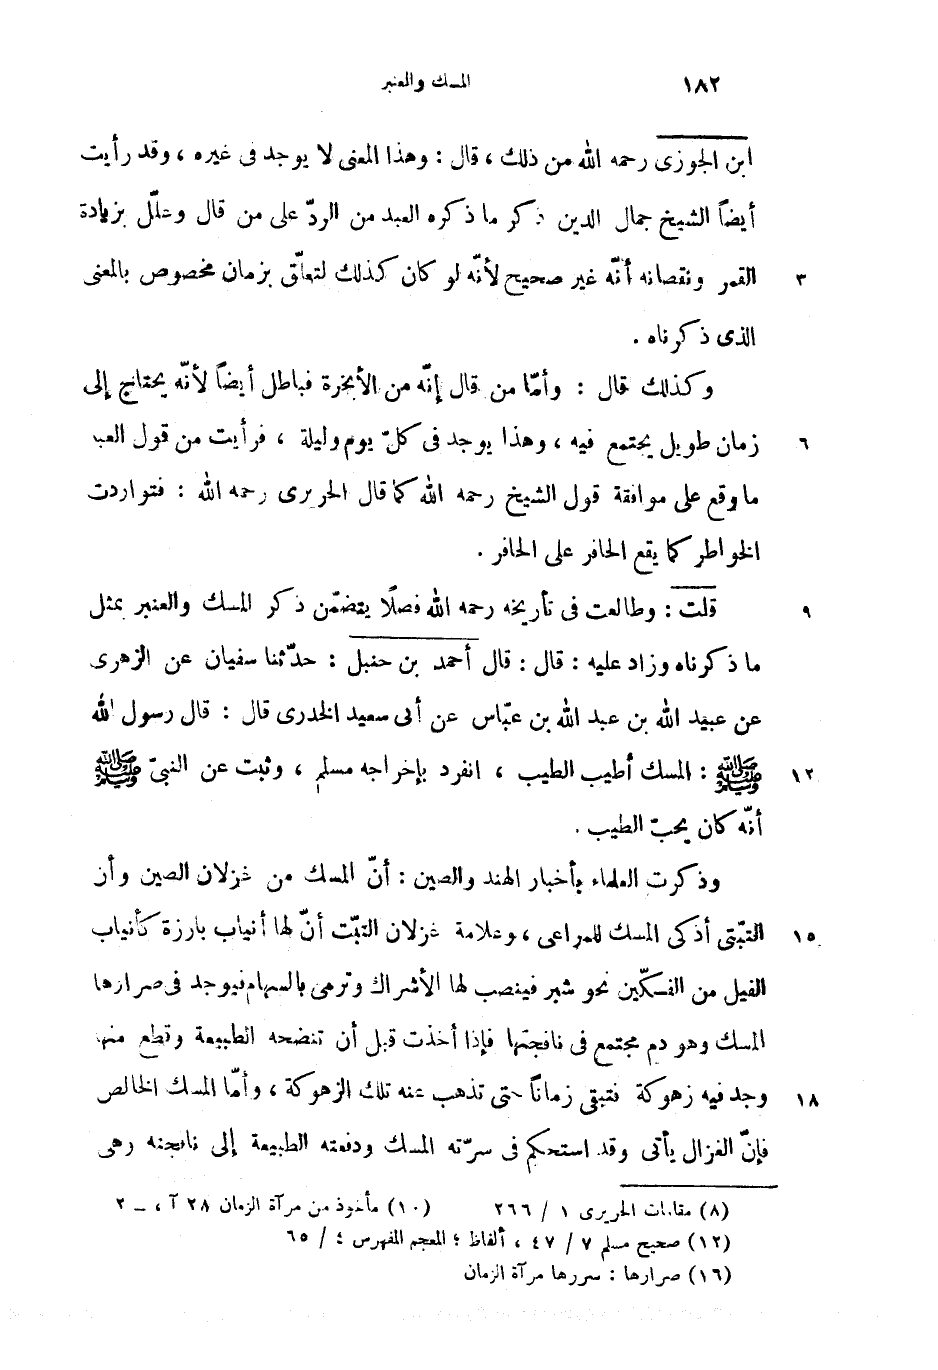 ١٨٢ المسك والعنبر
ابن الجوزى رحمه الله من ذلك ، قال : وهذا المعنى لا يوجد فى غيره ، وقد رأيت
أيضاً الشيخ جمال الدين ذكر ما ذكره العبد من الردّ على من قال وعلّل بزيادة
٣ القمر ونقصانه أنّه غير صحيح لأنّه لو كان كذلك لتعلّق بزمان مخصوص بالمعنى
الذى ذكرناه .
وكذلك قال : وأمّا من قال إنّه من الأبخرة فباطل أيضاً لأنّه يحتاج إلى
٦ زمان طويل يجتمع فيه ، وهذا يوجد فى كلّ يوم وليلة ، فرأيت من قول العبد
ما وقع على موافقة قول الشيخ رحمه الله كما قال الحريرى رحمه الله : فتواردت
الخواطر كما يقع الحافر على الحافر .
٩ قلت : وطالعت فى تأريخه رحمه الله فصلًا يتضمّن ذكر المسك والعنبر بمثل
ما ذكرناه وزاد عليه : قال : قال أحمد بن حنبل : حدّثنا سفيان عن الزهرى
عن عبيد الله بن عبد الله بن عبّاس عن أبى سعيد الخدرى قال : قال رسول الله
١٢ ﷺ : المسك أطيب الطيب ، انفرد بإخراجه مسلم ، وثبت عن النبىّ ﷺ
أنّه كان يحبّ الطيب .
وذكرت العلماء بأخبار الهند والصين : أنّ المسك من غزلان الصين وأن
١٥ التبّتى أذكى المسك للمراعى ، وعلامة غزلان التبّت أنّ لها أنياب بارزة كأنياب
الفيل من الفكّين نحو شبر فينصب لها الأشراك وترمى بالسهام فيوجد فى صرارها
المسك وهو دم مجتمع فى نافجتها فإذا أخذت قبل أن تنضحه الطبيعة وتطع منها
١٨ وجد فيه زهوكة فتبقى زماناً حتى تذهب عنه تلك الزهوكة ، وأمّا المسك الخالص
فإنّ الغزال يأتى وقد استحكم فى سرّته المسك ودفعته الطبيعة إلى نافجته وهى
(٨) مقامات الحريرى ١ / ٢٦٦ (١٠) مأخوذ من مرآة الزمان ٢٨ آ ، ـ ٢
(١٢) صحيح مسلم ٧ / ٤٧ ، ألفاظ ؛ المعجم المفهرس ٤ / ٦٥
(١٦) صرارها : سررها مرآة الزمان